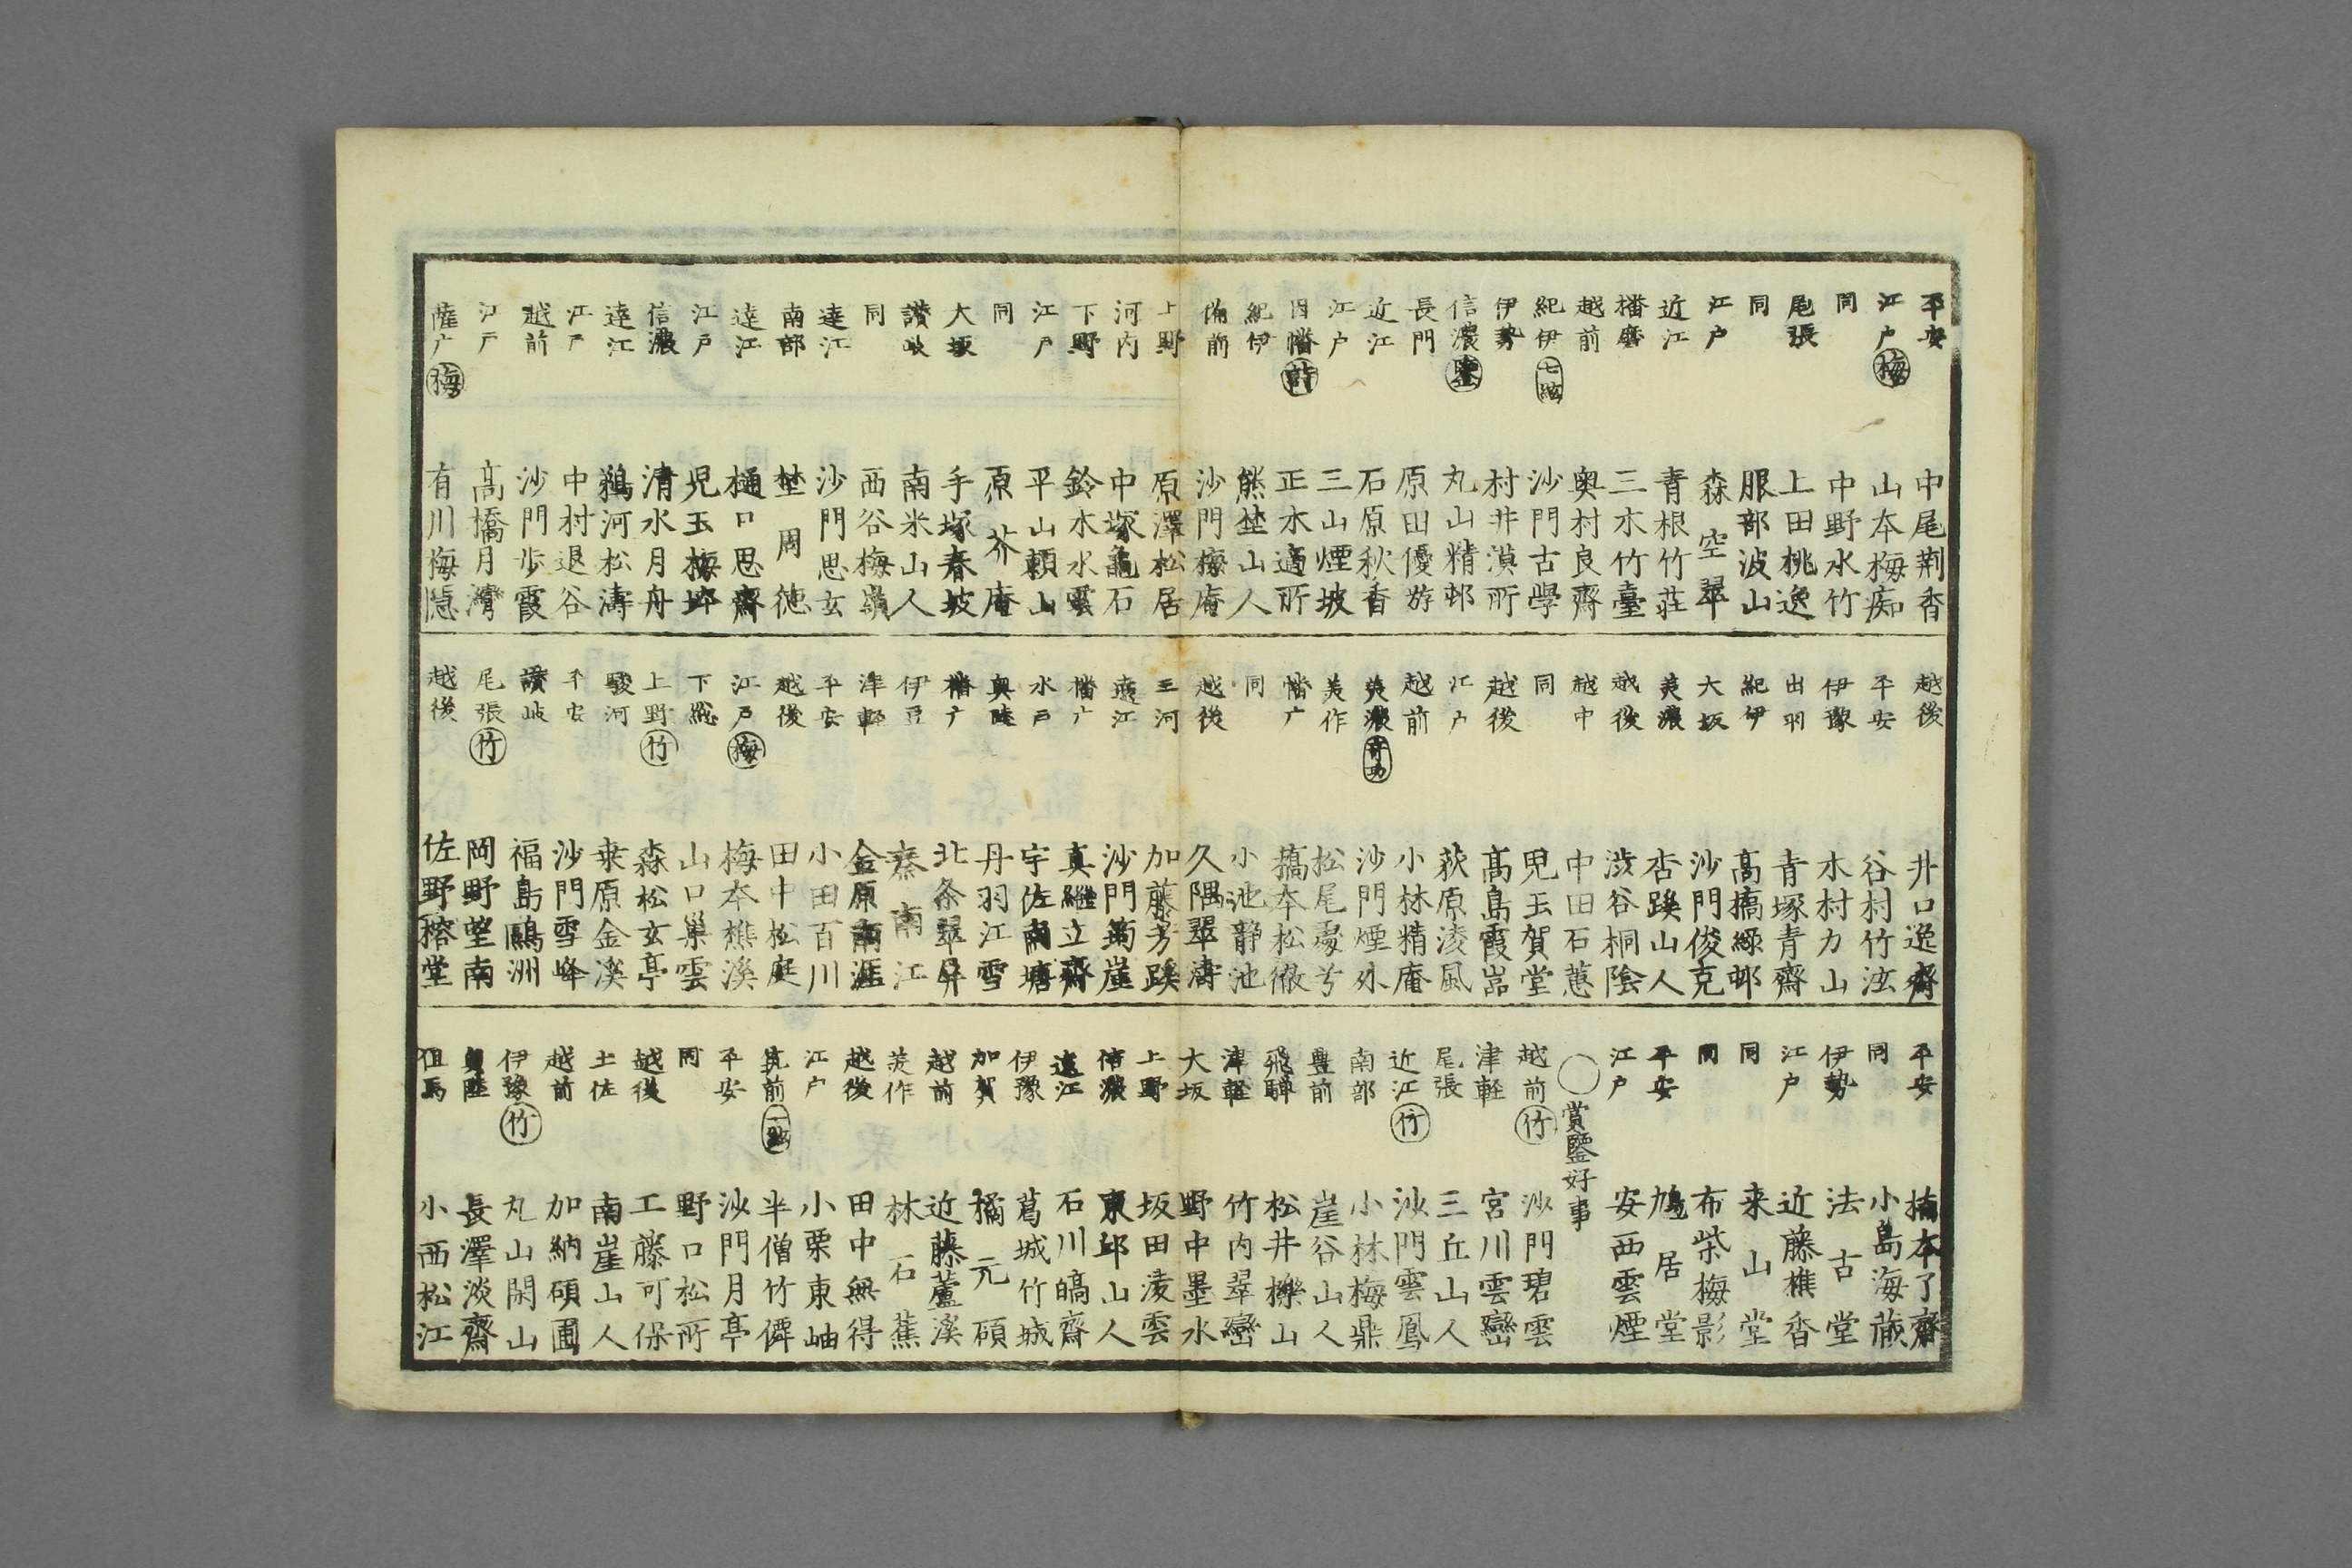 平安 中尾荆香
江户 梅 山本梅痴
同 中野水竹
尾張 上田桃逸
同 服部波山
江户 森空翠
近江 青根竹荘
播磨 三木竹臺
越前 奥村良齋
紀伊 七絃 沙門古學
伊勢 村井漠所
信濃 鑒 丸山精邨
長門 原田優游
近江 石原秋香
江户 三山煙坡
因幡 詩 正木適所
紀伊 熊埜山人
備前 沙門梅庵
上野 原澤松居
河内 中塚龜石
下野 鈴木水雲
江户 平山頼山
同 原芥庵
大坂 手塚春坡
讃岐 南米山人
同 西谷梅嶺
遠江 沙門思玄
南部 埜周徳
遠江 樋口思齋
江户 児玉梅邱
信濃 清水月舟
遠江 鵜河松濤
江户 中村退谷
越前 沙門歩霞
江户 高橋月灣
薩广 梅 有川梅隠
越後 井口逸齋
平安 谷村竹泫
伊豫 木村力山
出羽 青塚青齋
紀伊 高橋緑邨
大坂 沙門俊克
美濃 杏蹊山人
越後 渋谷桐陰
越中 中田石蕙
同 児玉賀堂
越後 髙島霞嵓
江户 荻原淩風
越前 小林精庵
美濃 沙門煙外
美作 松尾憂兮
播广 橋本松徹
同 小池静池
越後 久隅翠濤
三河 加藤芳蹊
遠江 沙門菊崖
播广 真継立齋
水戸 宇佐南塘
奥陸 丹羽江雪
播广 北条翠屏
伊豆 秦南江
津軽 金原南涯
平安 小田百川
越後 田中松庭
江户 梅 梅本樵溪
下総 山口巢雲
上野 竹 森松玄亭
駿河 桒原金溪
平安 沙門雪峰
讃岐 福島鷗洲
尾張 竹 岡野埜南
越後 佐野榕堂
平安 楠本了齋
同 小島海蔵
伊勢 法古堂
江户 近藤樵香
同 来山堂
同 布柴梅影
平安 鳩居堂
江户 安西雲煙
〇賞鑒好事
越前 竹 沙門碧雲
津軽 宮川雲巒
尾張 三丘山人
近江 竹 沙門雲鳳
南部 小林梅鼎
豊前 崖谷山人
飛騨 松井櫟山
津軽 竹内翠巒
大坂 野中墨水
上野 坂田淩雲
信濃 東邱山人
遠江 石川皜齋
伊豫 葛城竹城
加賀 橘元碩
越前 近藤蘆溪
美作 林石蕉
越後 田中無得
江户 小栗東岫
筑前 半僧竹僲
平安 沙門月亭
同 野口松所
越後 工藤可保
土佐 南崖山人
越前 加納碩圃
伊豫 竹 丸山閑山
奥陸 長澤淡齋
但馬 小西松江